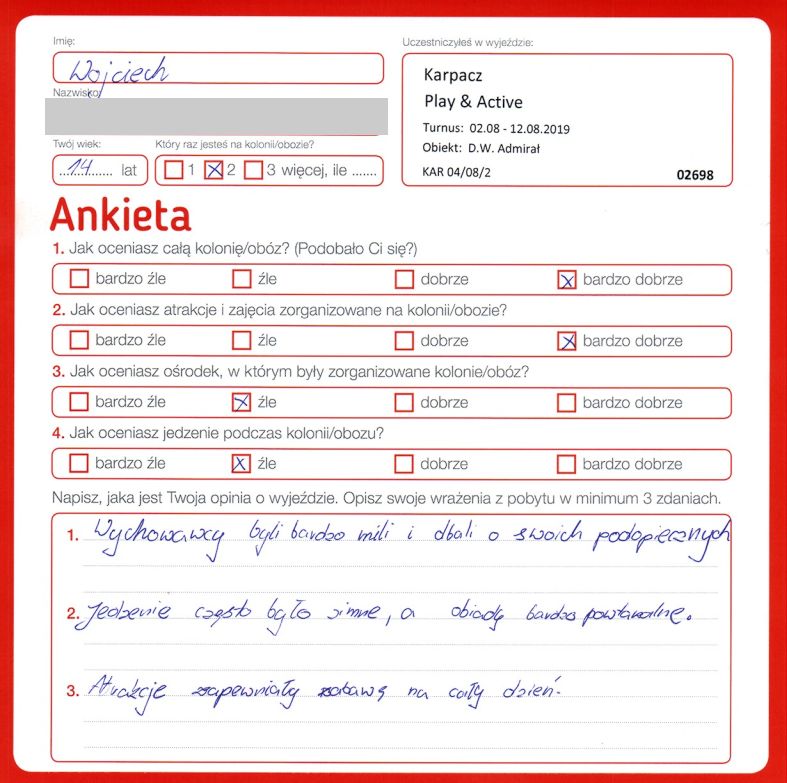 Imię:
Wojciech
Nazwisko:
Twój wiek:
14 lat
Który raz jesteś na kolonii/obozie?
1 2 3 więcej, ile .......
Uczestniczyłeś w wyjeździe:
Karpacz
Play & Active
Turnus: 02.08 - 12.08.2019
Obiekt: D.W. Admirał
KAR 04/08/2 02698
Ankieta
1. Jak oceniasz całą kolonię/obóz? (Podobało Ci się?)
bardzo źle źle dobrze bardzo dobrze
2. Jak oceniasz atrakcje i zajęcia zorganizowane na kolonii/obozie?
bardzo źle źle dobrze bardzo dobrze
3. Jak oceniasz ośrodek, w którym były zorganizowane kolonie/obóz?
bardzo źle źle dobrze bardzo dobrze
4. Jak oceniasz jedzenie podczas kolonii/obozu?
bardzo źle źle dobrze bardzo dobrze
Napisz, jaka jest Twoja opinia o wyjeździe. Opisz swoje wrażenia z pobytu w minimum 3 zdaniach.
1. Wychowawcy byli bardzo mili i dbali o swoich podopiecznych
2. Jedzenie często było zimne, a obiady bardzo powtarzalne.
3. Atrakcje zapewniały zabawę na cały dzień.